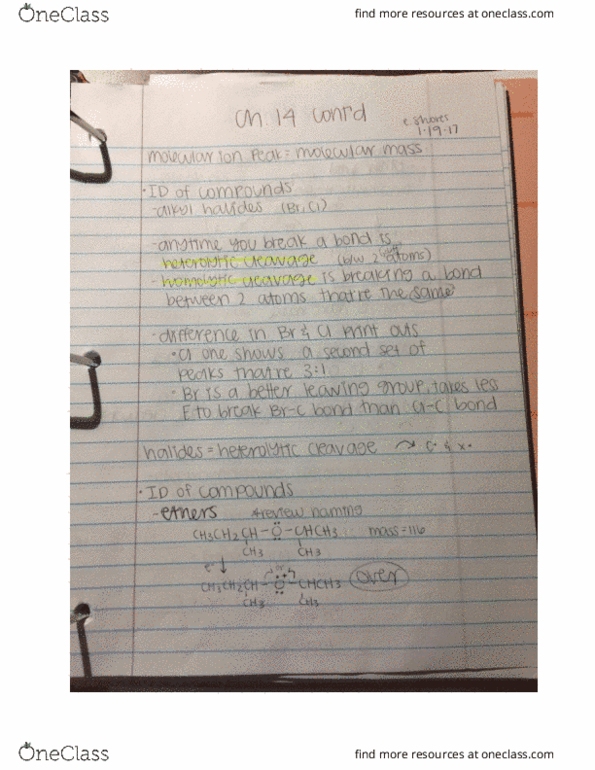 OneClass
find more resources at oneclass.com
Ch. 14 Cont'd
1-19-17
molecular Ion Peak = molecular mass
· ID of compounds
- alkyl halides (Br, Cl)
- anytime you break a bond is
heterolytic cleavage (b/w 2 atoms)
- homolytic cleavage is breaking a bond
between 2 atoms that're the same
- difference in Br & Cl print outs
· Cl one shows a second set of
peaks that're 3:1
· Br is a better leaving group, takes less
E to break Br-C bond than Cl-C bond
halides = heterolytic cleavage
· ID of compounds
- ethers review naming
CH3CH2CH-O-CHCH3 mass=116
CH3 CH3
e-↓
CH3CH2CH-O-CHCH3 over
CH3 CH3
OneClass
find more resources at oneclass.com